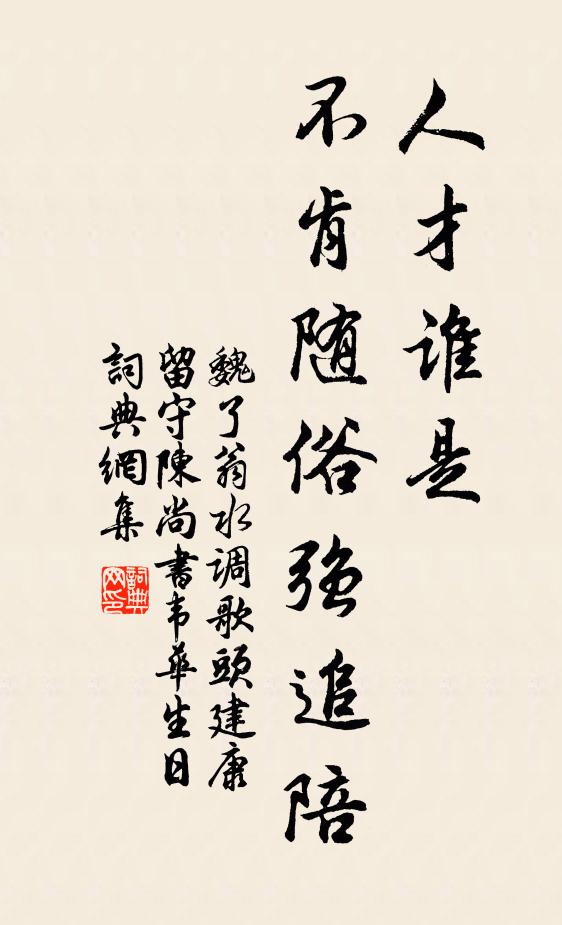 人才谁是
不肯随俗强追陪
魏了翁水调歌頭建康
留守陳尚書韦華生日
詞典網集
詞典網印